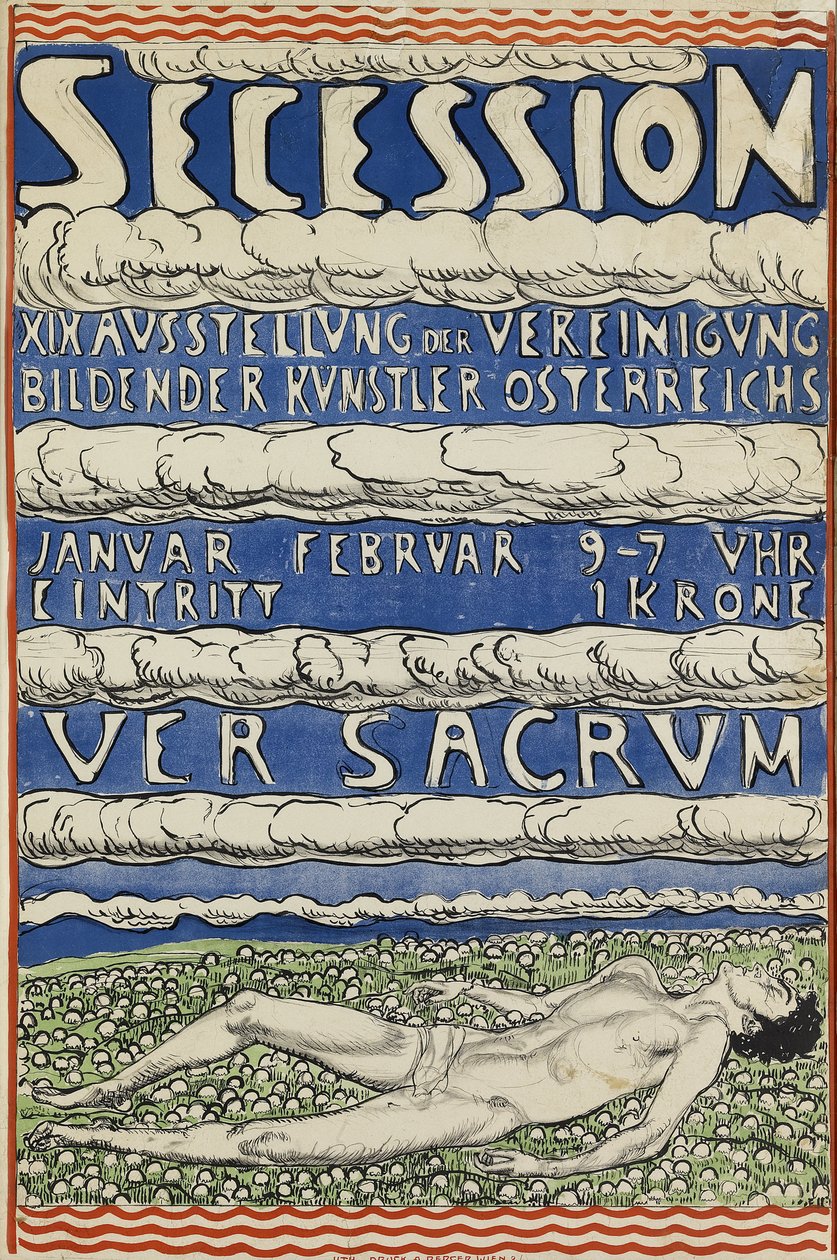 SECESSION
XIX AVSSTELLVNG DER VEREINIGVNG
BILDENDER KVNSTLER OSTERREICHS
JANVAR FEBRVAR 9-7 VHR
EINTRITT 1 KRONE
VER SACRVM
LITH. DRUCK A. BERGER WIEN